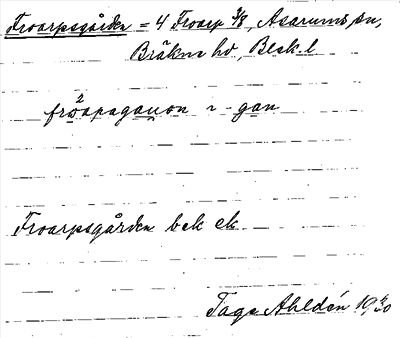 Froarpsgården = 4 Froarp 3/8, Asarums sn,
Bräkne hd, Blek. l
Froarpsgården bek ek
Tage Ahldén 19 40